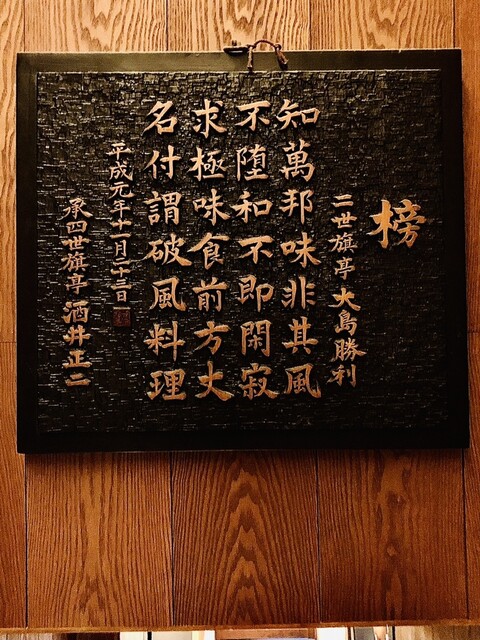 榜
二世旗亭 大島勝利
知萬邦味非其風
不墮和不即閑寂
求極味食前方丈
名付謂破風料理
平成元年十一月二十三日
承四世旗亭 酒井正二